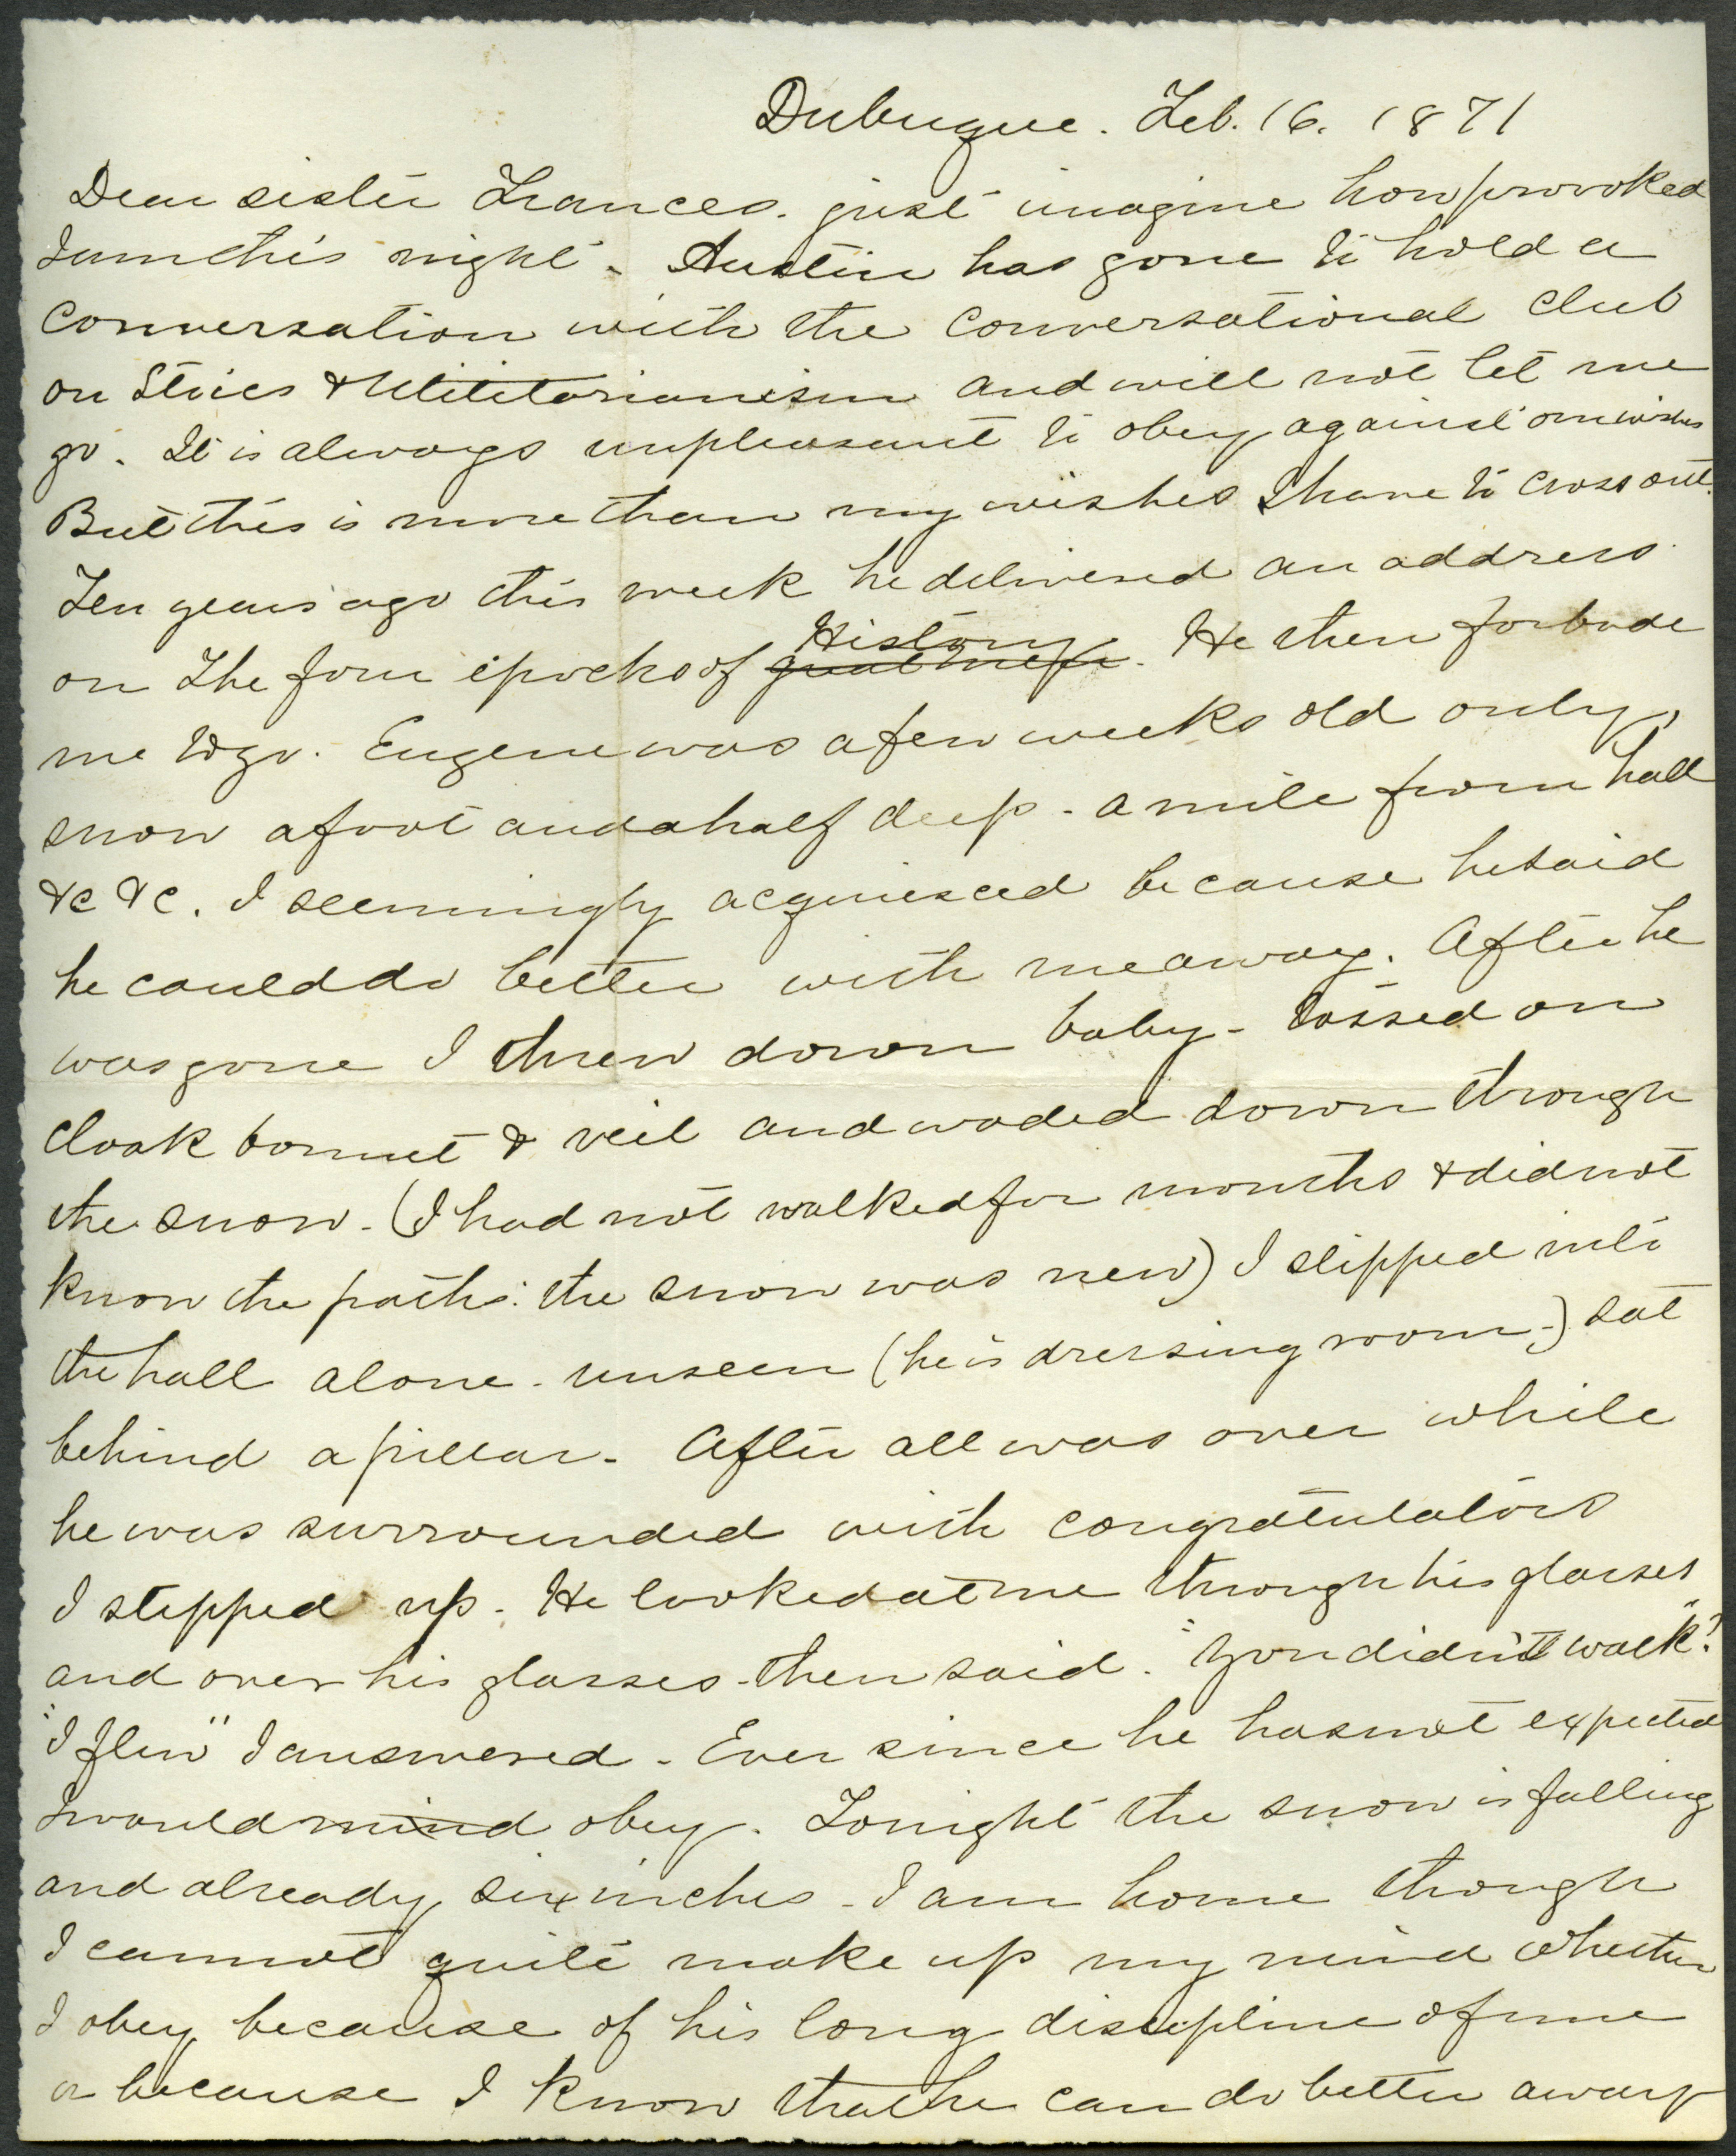 Dubuque. Feb. 16. 1871
Dear sister Frances. just imagine how provoked
I am this night - Austin has gone to hold a
conversation with the conversational club
on Stoics & Utilitarianism and will not let me
go. It is always unpleasant to obey against our wishes
But this is more than my wishes I have to cross out.
Ten years ago this week he delivered an address
on The four epochs of great men History. He then forbade
me to go. Eugene was a few weeks old only,
snow a foot and a half deep - a mile from hall
&c &c. I seemingly acquiesced because he said
he could do better with me away. After he
was gone I threw down baby - tossed on
cloak bonnet & veil and waded down through
the snow - (I had not walked for months & did not
know the paths: the snow was new) I slipped into
the hall alone - unseen (he in dressing room -) sat
behind a pillar - After all was over while
he was surrounded with congratulators
I stepped up - He looked at me through his glasses
and over his glasses - then said. "You didn't walk"?
"I flew" I answered - Ever since he has not expected
I would mind obey. Tonight the snow is falling
and already six inches - I am home though
I cannot quite make up my mind whether
I obey because of his long discipline of me
or because I know that he can do better away